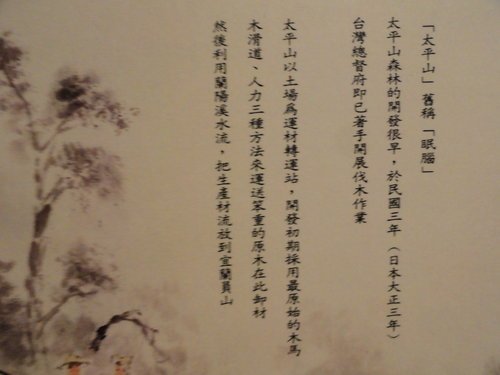 「太平山」舊稱「眠腦」
太平山森林的開發很早，於民國三年（日本大正三年）
台灣總督府即已著手開展伐木作業
太平山以土場為運材轉運站，開發初期採用最原始的木馬
木滑道、人力三種方法來運送笨重的原木在此卸材
然後利用蘭陽溪水流，把生產材流放到宜蘭員山